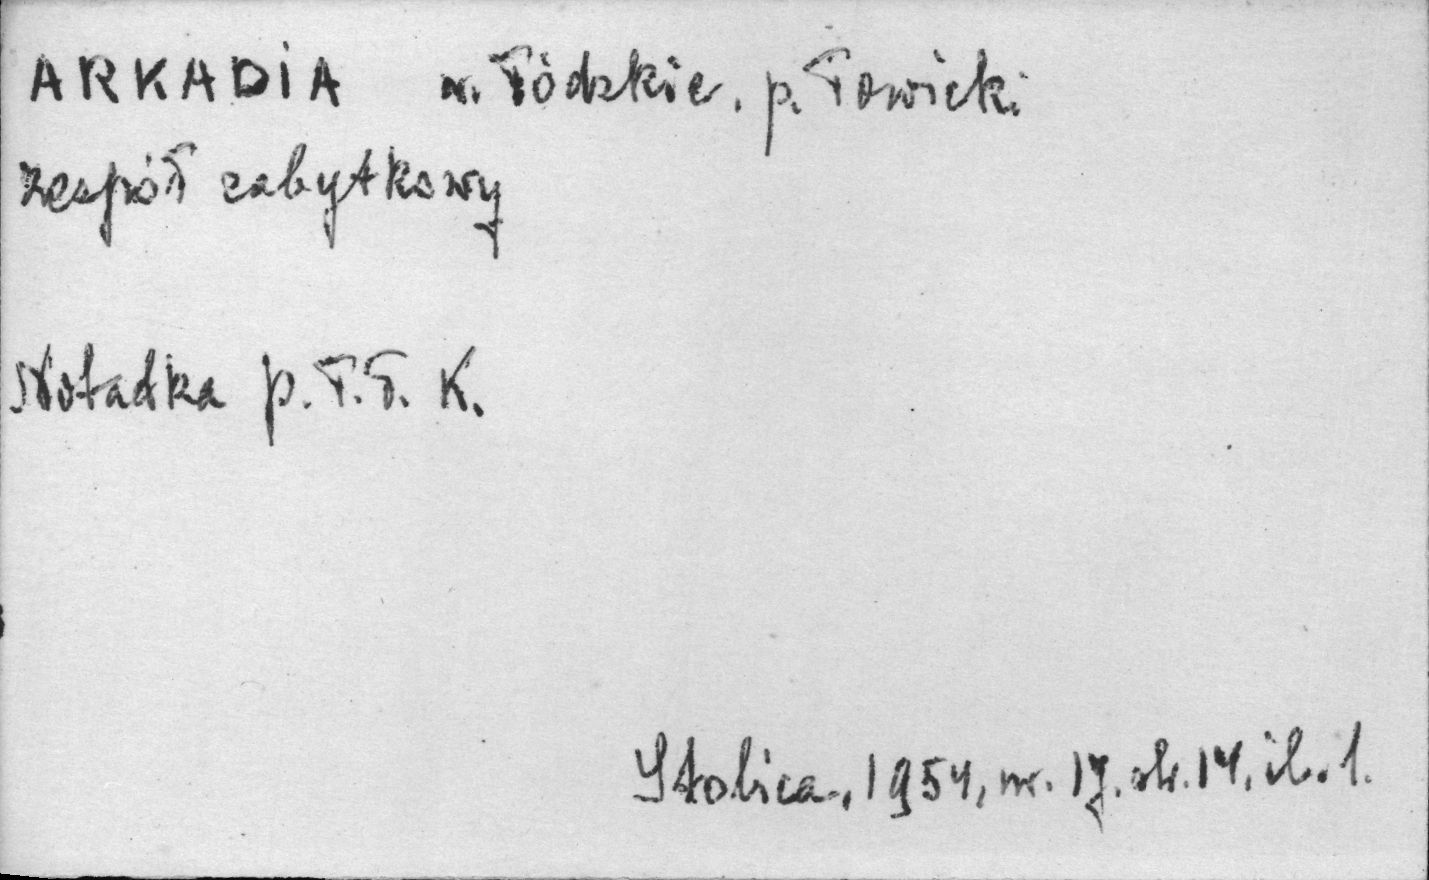 ARKADIA w. Łódzkie. p. Łowicki
zespół zabytkowy
Notatka p. T. Ł. K.
Stolica, 1954, nr. 17. str. 14. il. 1.